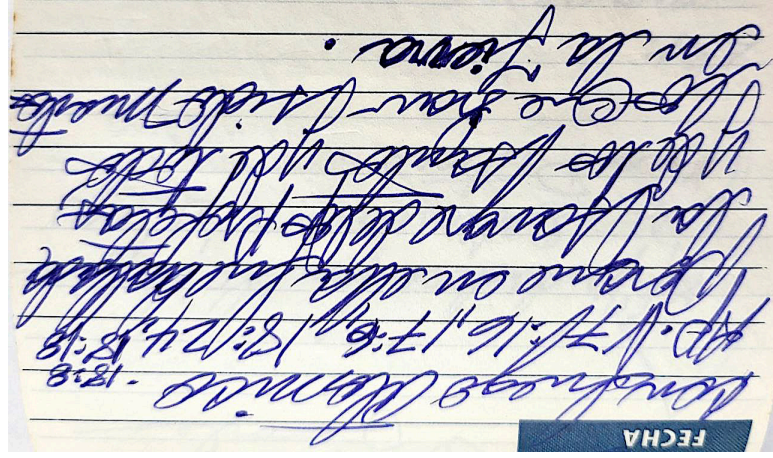 FECHA
con fuego Atomico - 18:8
17:16, 17:6, 18:24, 18:18
Porque en ella fue hallada
la sangre de los profetas
y de los santos y de todos
los que han sido muertos
en la Tierra.